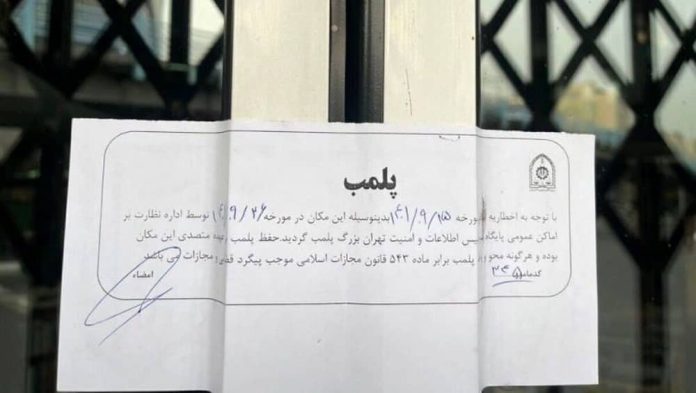 پلمب
با توجه به اخطاریه مورخه ۱۴۰۱/۹/۱۵ بدینوسیله این مکان در مورخه ۱۴۰۱/۹/۲۶ توسط اداره نظارت بر
اماکن عمومی پایگاه پلیس اطلاعات و امنیت تهران بزرگ پلمب گردید. حفظ پلمب بعهده متصدی این مکان
بوده و هرگونه محو پلمب برابر ماده ۵۴۳ قانون مجازات اسلامی موجب پیگرد و مجازات می باشد
کدمامور ۳۴۵
امضاء